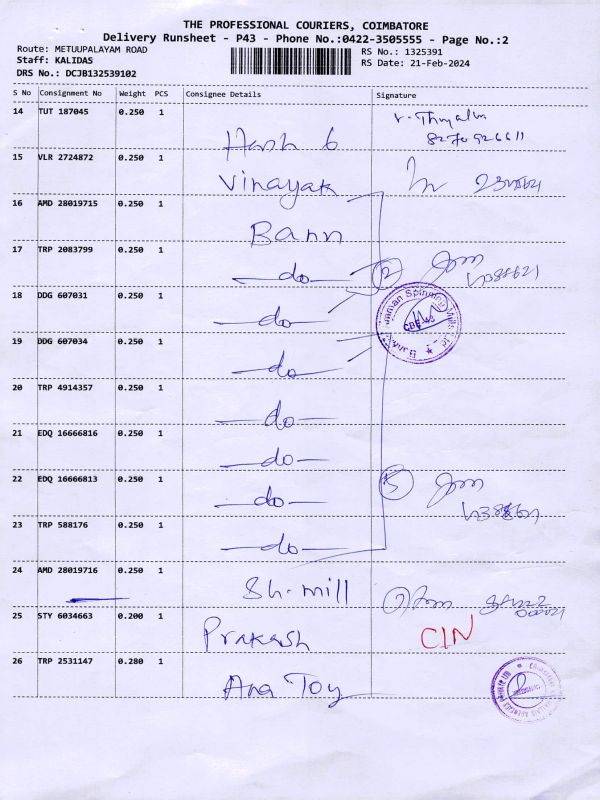 THE PROFESSIONAL COURIERS, COIMBATORE
Delivery Runsheet - P43 - Phone No.:0422-3505555 - Page No.:2
Route: METUUPALAYAM ROAD
RS No.: 1325391
Staff: KALIDAS
RS Date: 21-Feb-2024
DRS No.: DCJB132539102
S No Consignment No Weight PCS Consignee Details Signature
14 TUT 187045 0.250 1 Hash 6
15 VLR 2724872 0.250 1 Vinayak
16 AMD 28019715 0.250 1 Bann
17 TRP 2083799 0.250 1 -do- 2
18 DDG 607031 0.250 1 -do-
19 DDG 607034 0.250 1 -do-
20 TRP 4914357 0.250 1 -do-
21 EDQ 16666816 0.250 1 -do-
22 EDQ 16666813 0.250 1 -do- 5
23 TRP 588176 0.250 1 -do-
24 AMD 28019716 0.250 1 Sh. mill
25 STY 6034663 0.200 1 Prakash CIN
26 TRP 2531147 0.280 1 Ana Toy